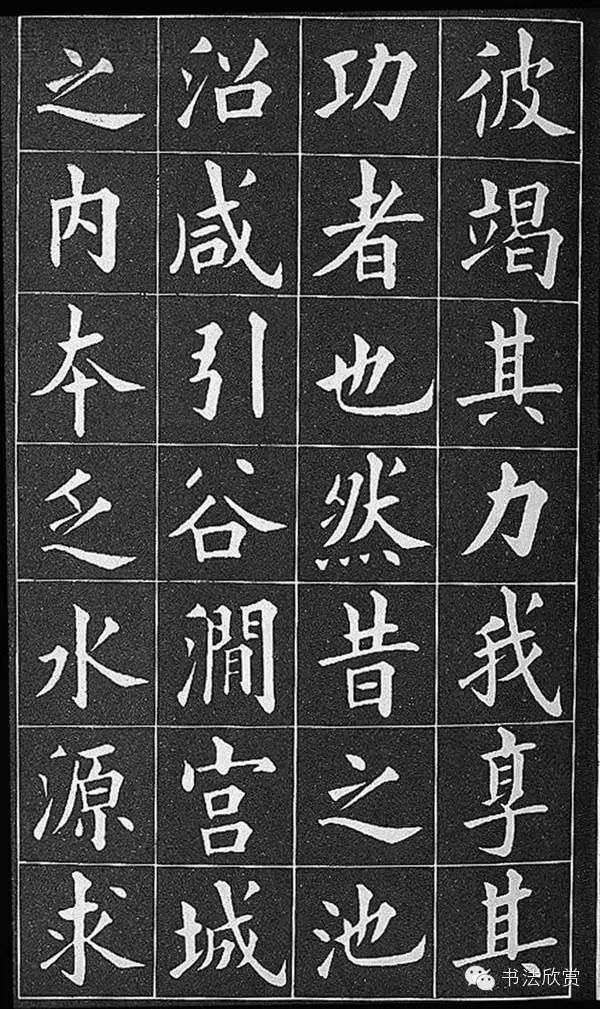 彼竭其力我享其
功者也然昔之池
沼咸引谷澗宫城
之内本乏水源求
书法欣赏